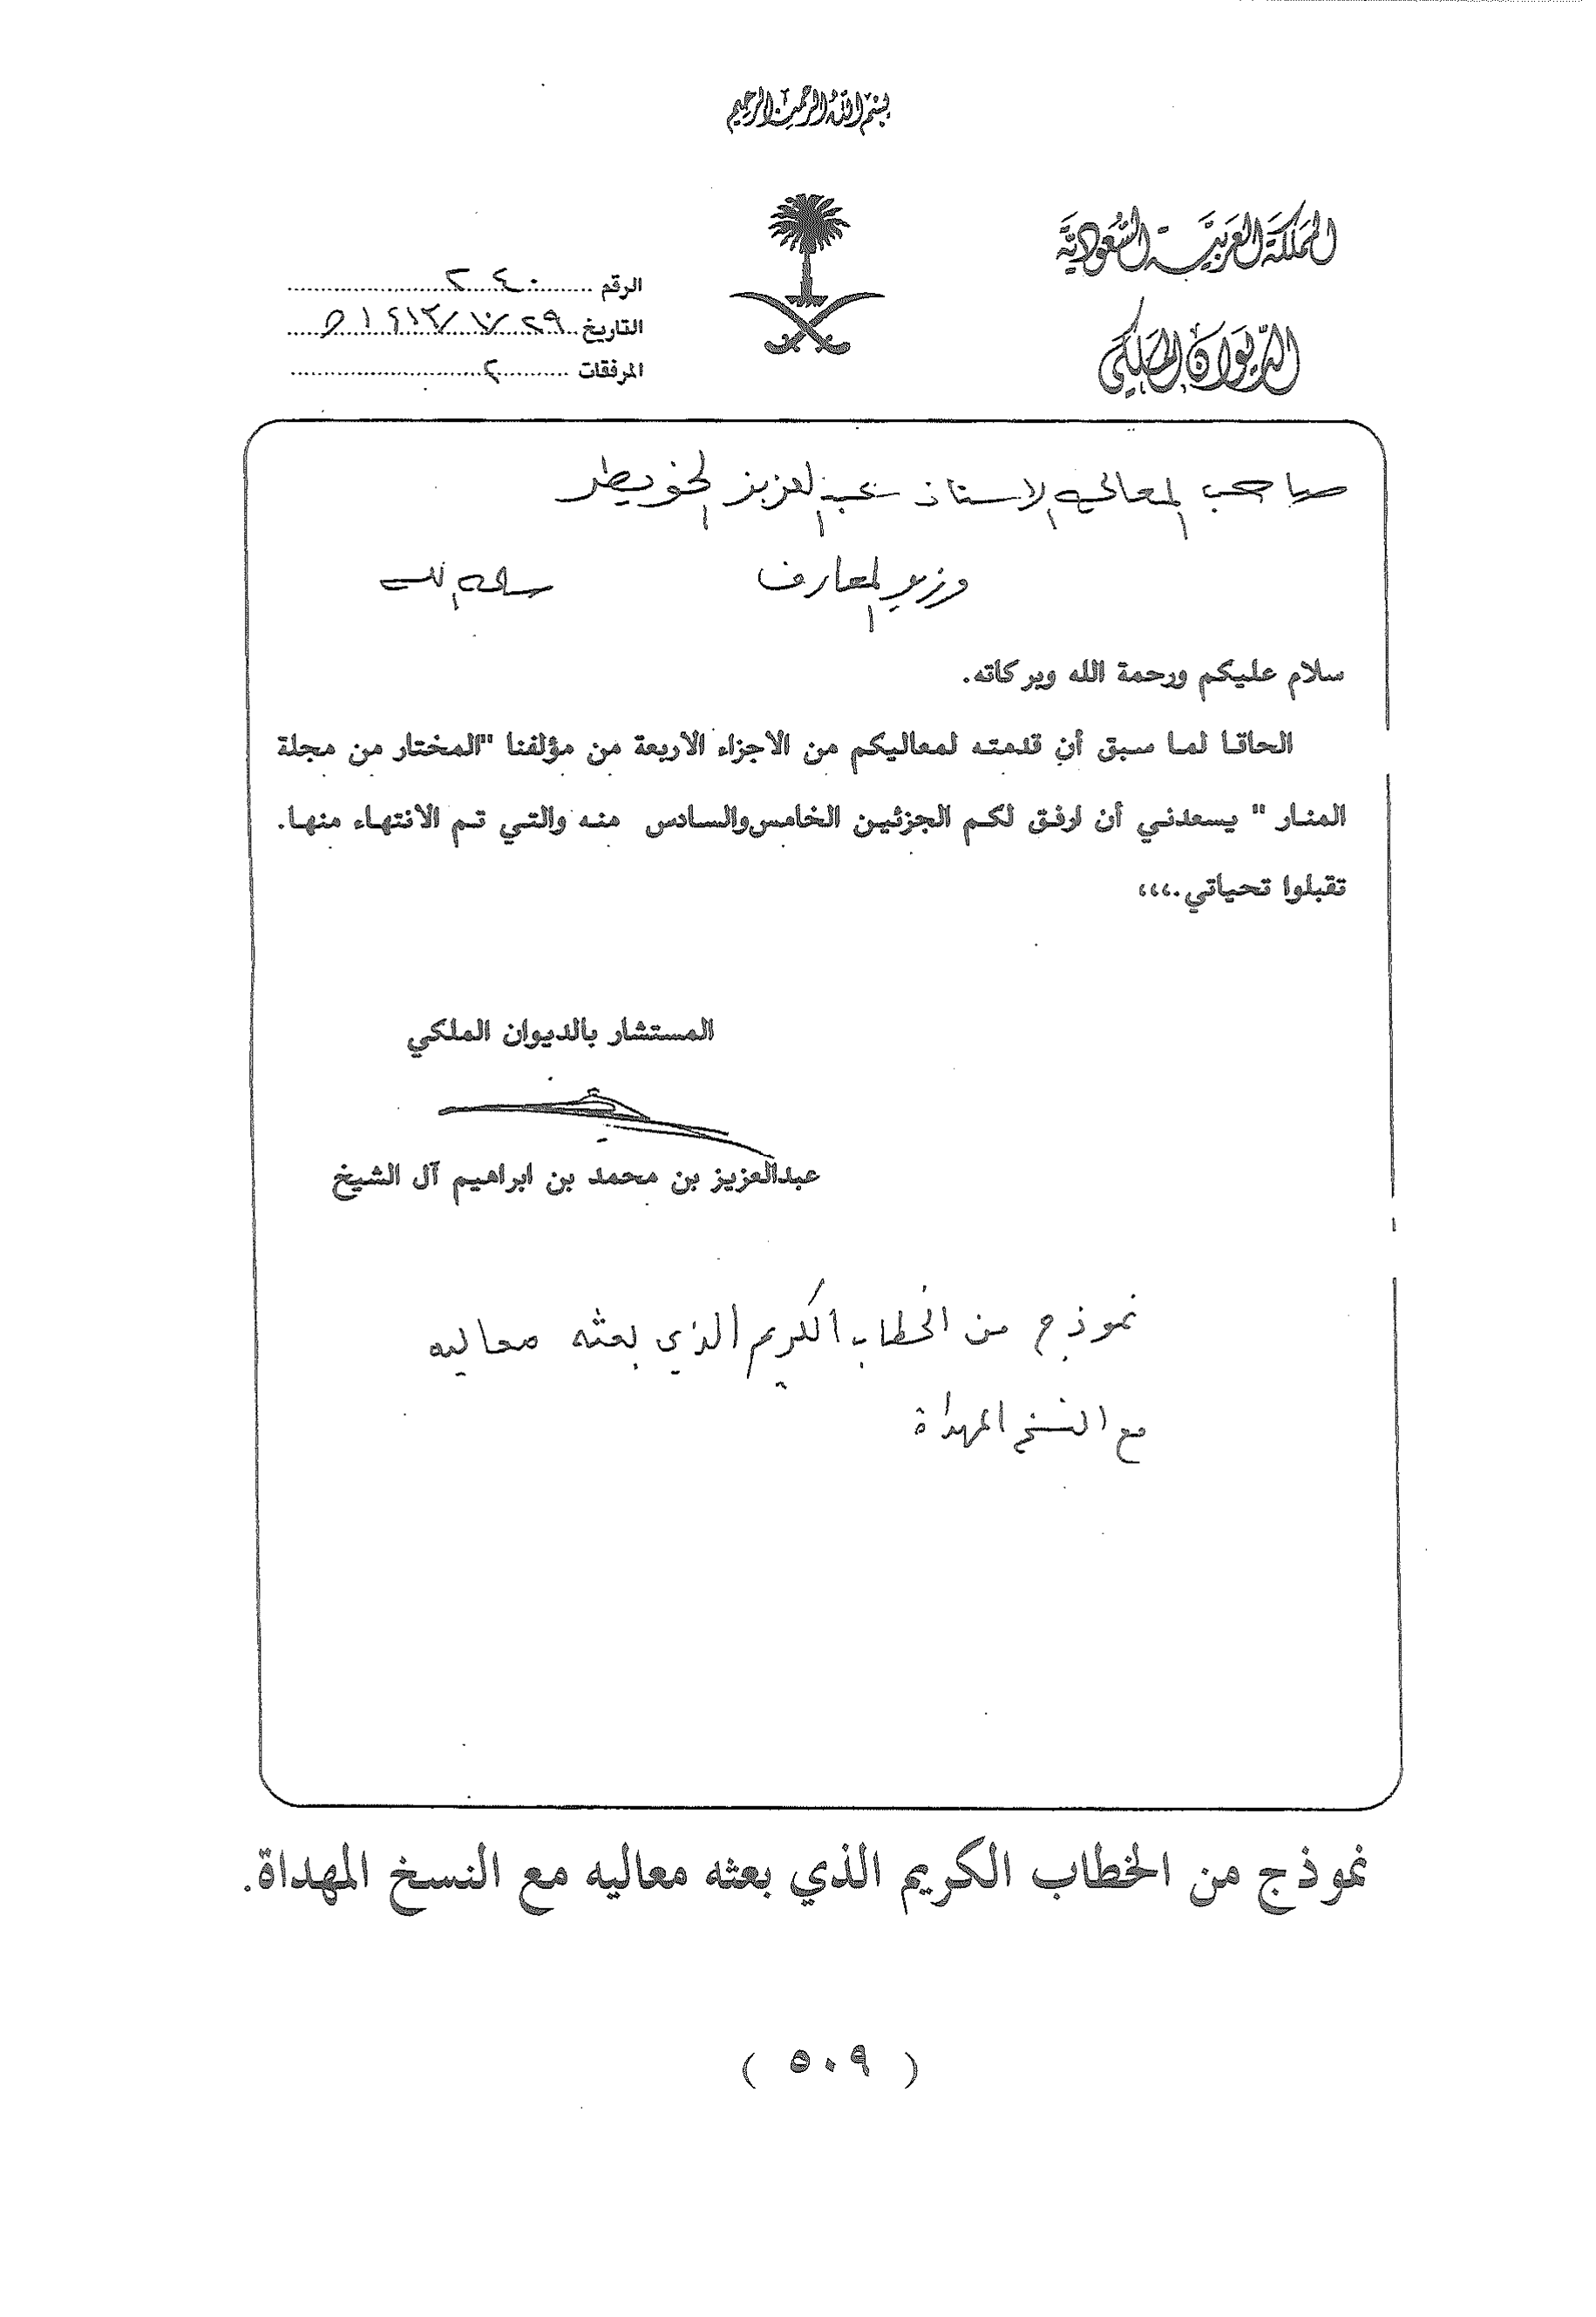 بسم الله الرحمن الرحيم
المملكة العربية السعودية
الديوان الملكي
الرقم ٢٠٤٠
التاريخ ٢٩/١٠/١٤١٣هـ
المرفقات ٢
صاحب المعالي الاستاذ عبدالعزيز الخويطر
وزير المعارف سلمه الله
سلام عليكم ورحمة الله وبركاته.
الحاقا لما سبق أن قدمته لمعاليكم من الاجزاء الاربعة من مؤلفنا "المختار من مجلة
المنار " يسعدني أن ارفق لكم الجزئين الخامس والسادس منه والتي تم الانتهاء منها.
تقبلوا تحياتي.،،،
المستشار بالديوان الملكي
عبدالعزيز بن محمد بن ابراهيم آل الشيخ
نموذج من الخطاب الكريم الذي بعثه معاليه
مع النسخ المهداة
نموذج من الخطاب الكريم الذي بعثه معاليه مع النسخ المهداة.
( ٥٠٩ )